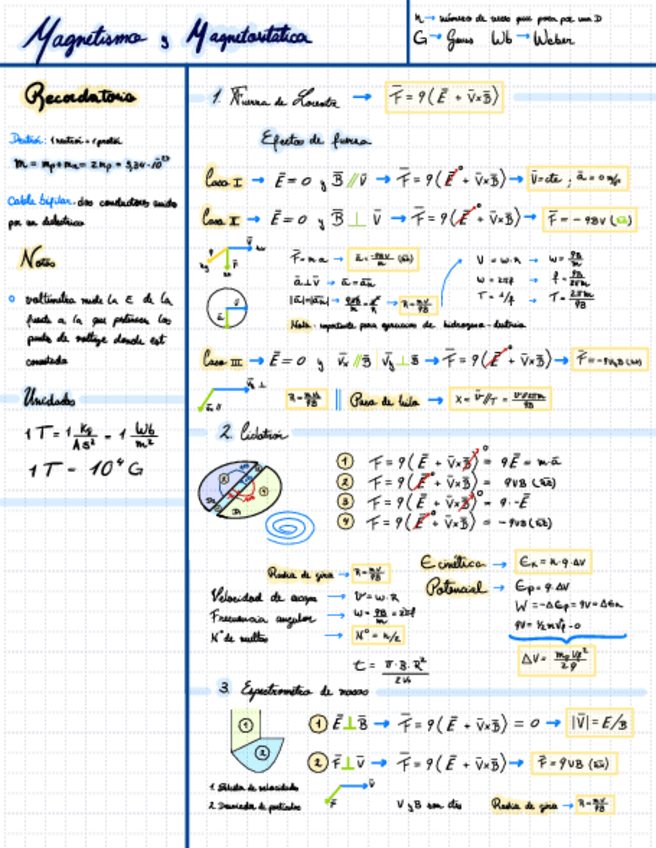 Magnetismo y Magnetostática
n → número de veces que pasa por una D
G → Gauss Wb → Weber
Recordatorio
Deutrón: 1 neutrón + 1 protón
m = mp + mn = 2mp = 3,34·10⁻²⁷
Cable bipolar: dos conductores unido
por un dieléctrico
Notas
voltímetro mide la E de la
fuente a la que
punto de voltaje donde est
conectado
Unidades
1T = 1 Kg/AS² = 1 Wb/m²
1T = 10⁴ G
1. Fuerza de Lorentz → F̄ = q(Ē + V̄×B̄)
Efectos de fuerza
Caso I → Ē = 0 y B̄ // V̄ → F̄ = q(Ē⁰ + V̄×B̄) → V̄ = cte ; ā = 0 m/s²
Caso II → Ē = 0 y B̄ ⊥ V̄ → F̄ = q(Ē⁰ + V̄×B̄) → F̄ = -qBV (ūn)
F̄ = m·a → ā = -qBV/m (ūn)
ā ⊥ V → ā = ān
|ā| = |ān| → qVB/m = V²/R → R = mV/qB
V = w·R → w = qB/m
w = 2πf → f = qB/2πm
T = 1/f → T = 2πm/qB
Nota: importante para ejercicios de hidrógeno - deuterio
Caso III → Ē = 0 y V̄x // B̄ V̄y ⊥ B̄ → F̄ = q(Ē⁰ + V̄×B̄) → F̄ = -qVyB (ūn)
V̄y ⊥
R = mV/qB
Paso de hélice → X = V//T = V//2πm/qB
2. Ciclotrón
1 F̄ = q(Ē + V̄×B̄)⁰ = qĒ = m·ā
2 F̄ = q(Ē⁰ + V̄×B̄) = qVB (ūn)
3 F̄ = q(Ē + V̄×B̄)⁰ = q·-Ē
4 F̄ = q(Ē⁰ + V̄×B̄) = -qVB (ūn)
Radio de giro → R = mV/qB
Velocidad de → V = w·R
Frecuencia angular → w = qB/m = 2πf
N° de vueltas → N° = n/2
t = π·B·R²/2V₀
E cinética → Ek = n·q·ΔV
Potencial → Ep = q·ΔV
W = -ΔEp = qV = ΔEk
qV = ½mV²f - 0
ΔV = mp Vf²/2q
3. Espectrómetro de masas
1 Ē ⊥ B̄ → F̄ = q(Ē + V̄×B̄) = 0 → |V̄| = E/B
2 F̄ ⊥ V̄ → F̄ = q(Ē + V̄×B̄) → F̄ = qVB (ūn)
1. Selector de velocidades
2. Desviador de partículas
V y B son ctes
Radio de giro → R = mV/qB